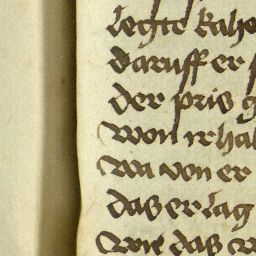 legte kaho
daruff er
der pris g
won ir hal
wa von er
das er lag
wie das w